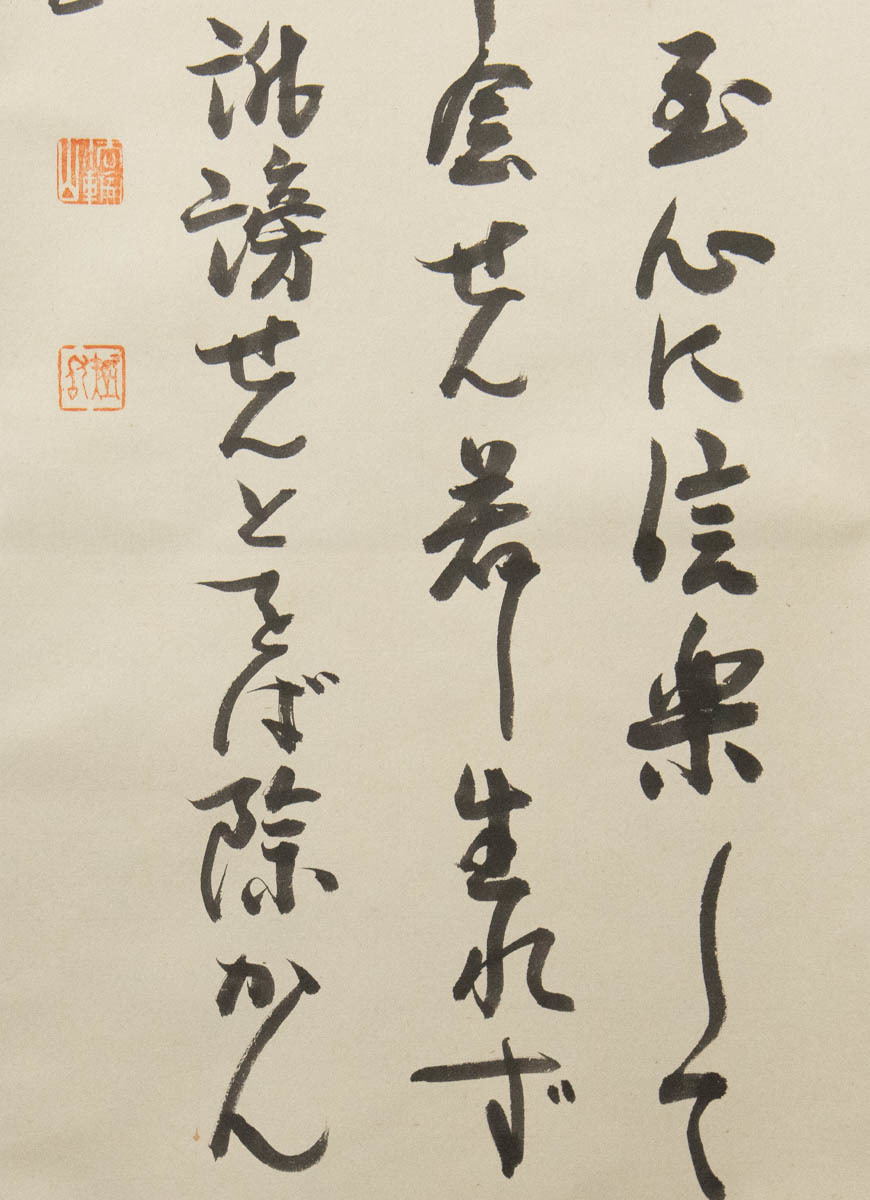 至心に信楽して
念せん若し生れず
誹謗せんとをば除かん